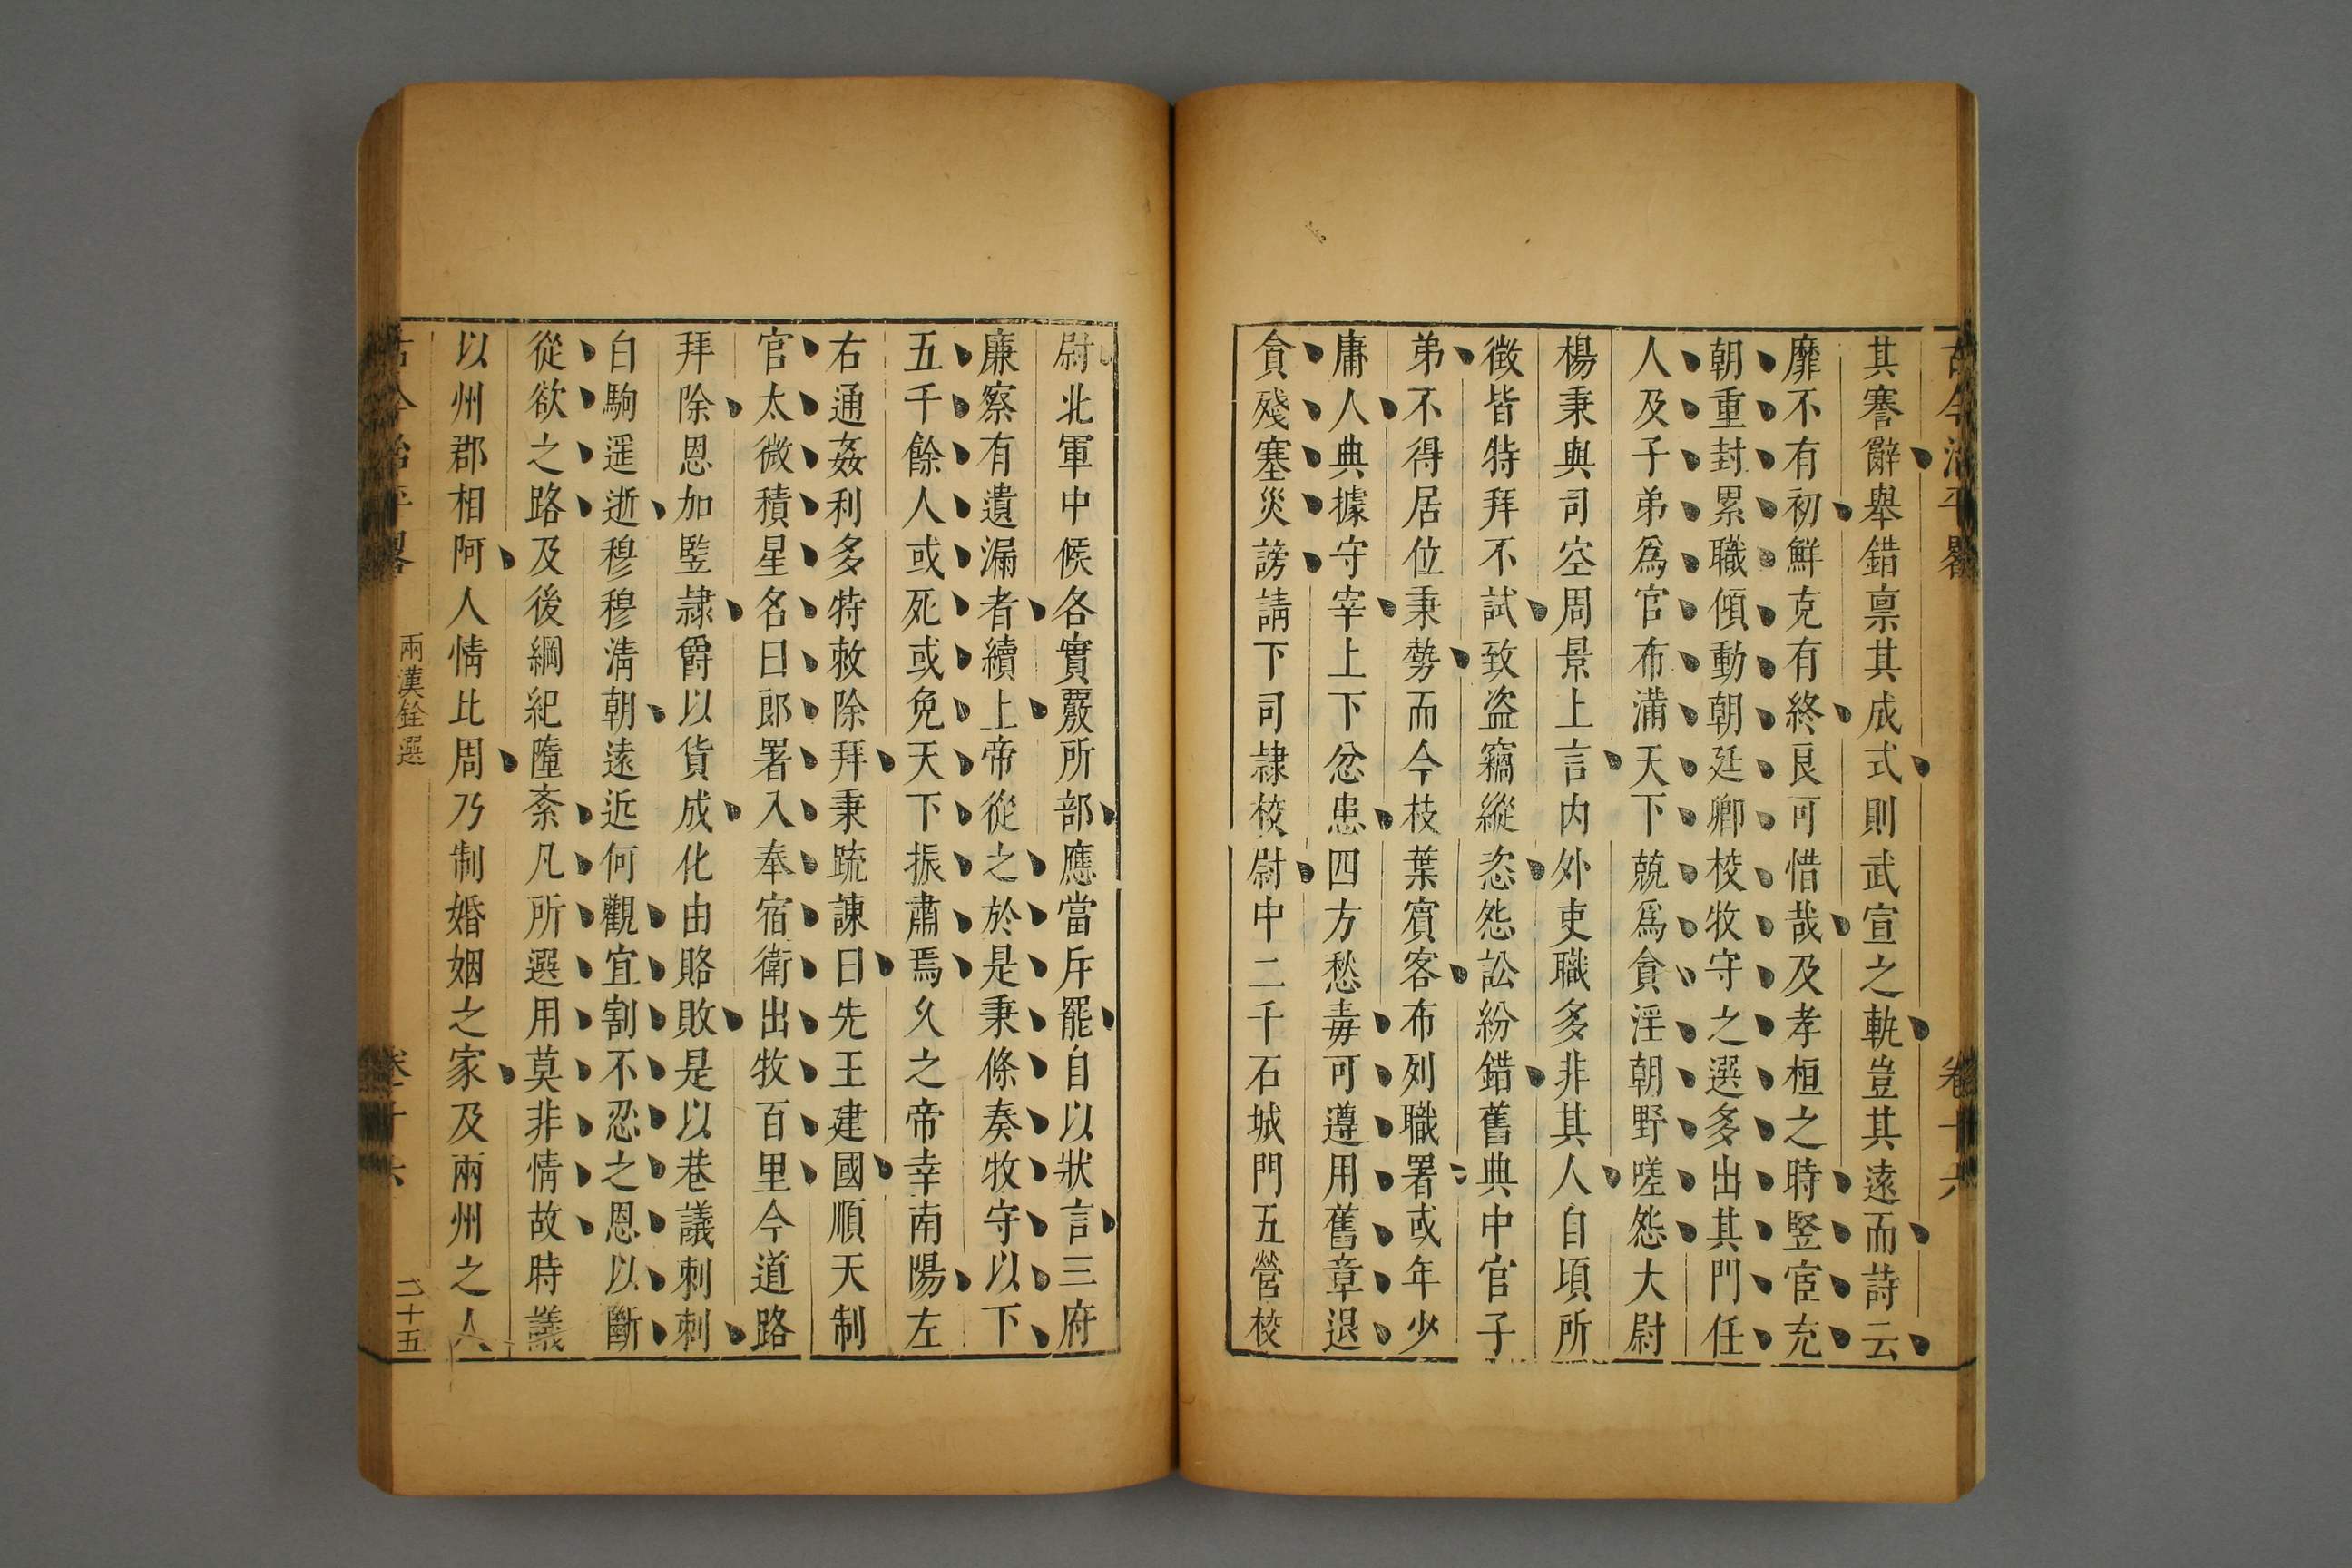 古今治平畧 卷十六
其謇辭舉錯禀其成式則武宣之軌豈其遠而詩云
靡不有初鮮克有終良可惜哉及孝桓之時竪宦充
朝重封累職傾動朝廷卿校牧守之選多出其門任
人及子弟爲官布滿天下兢爲貪淫朝野嗟怨大尉
楊秉與司空周景上言内外吏職多非其人自頃所
徵皆特拜不試致盗竊縱恣怨訟紛錯舊典中官子
弟不得居位秉勢而今枝葉賓客布列職署或年少
庸人典據守宰上下忿患四方愁毒可遵用舊章退
貪殘塞災謗請下司隷校尉中二千石城門五營校
尉北軍中候各實覈所部應當斥罷自以狀言三府
廉察有遺漏者續上帝從之於是秉條奏牧守以下
五千餘人或死或免天下振肅焉久之帝幸南陽左
右通姦利多特敕除拜秉䟽諫曰先王建國順天制
官太微積星名曰郎署入奉宿衛出牧百里今道路
拜除恩加監隷爵以貨成化由賂敗是以巷議刺刺
白駒遥逝穆穆淸朝遠近何觀宜割不忍之恩以斷
從欲之路及後綱紀隳紊凡所選用莫非情故時議
以州郡相阿人情比周乃制婚姻之家及兩州之人
古今治平畧 兩漢銓選 卷十六 二十五